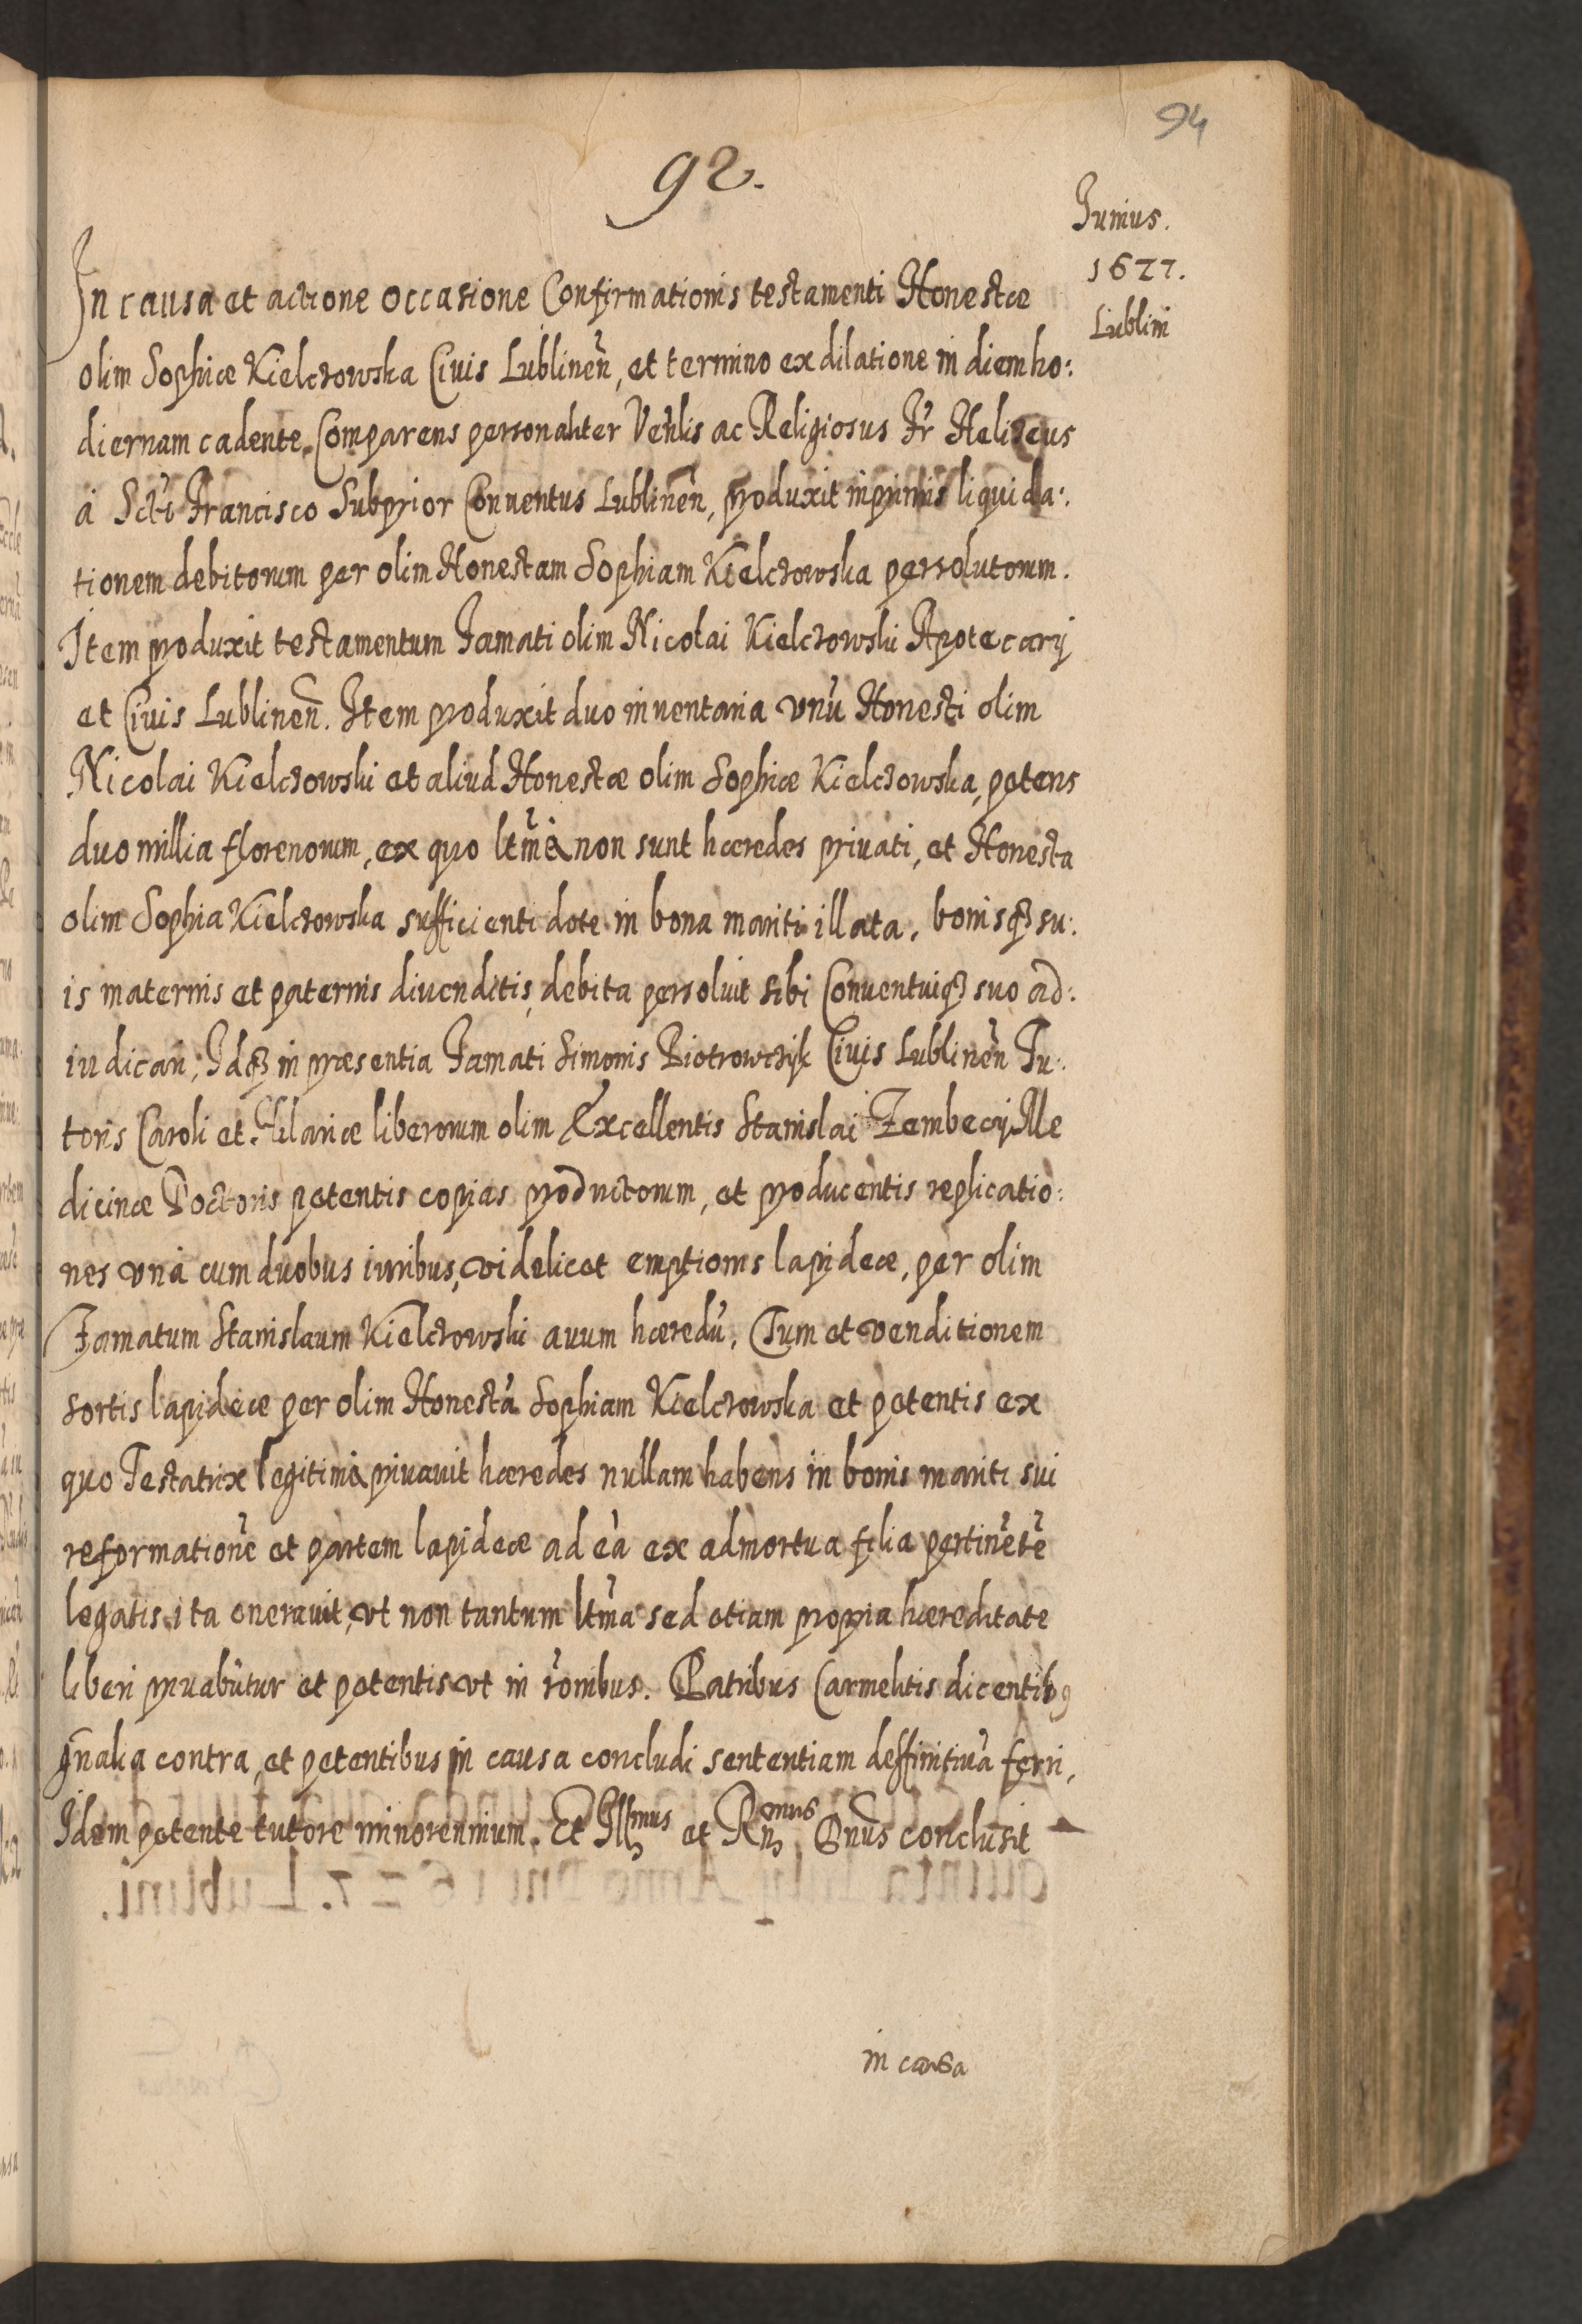 94
92.
Junius.
1627.
Lublini
In causa et actione occasione Confirmationis testamenti Honestæ
olim Sophiæ Kielczowska Civis Lublineñ, et termino ex dilatione in diem ho:
diernam cadente. Comparens personaliter Veñlis ac Religiosus Fr̃ Heliseus
à Scti Francisco Subprior Conventus Lublineñ, produxit inprimis liquida:
tionem debitorum per olim Honestam Sophiam Kielczowska persolutorum.
Item produxit testamentum Famati olim Nicolai Kielczowski Apotecarij
et Civis Lublineñ. Item produxit duo inventaria vnũ Honesti olim
Nicolai Kielczowski et aliud Honestæ olim Sophiæ Kielczowska, petens
duo millia florenorum, ex quo ltm̃à non sunt hæredes privati, et Honesta
olim Sophia Kielczowska sufficienti dote in bona mariti illata, bonisq3 su:
is maternis et paternis divenditis, debita persoluit sibi Conventuiq3 suo ad:
iudicari, Idq3 in præsentia Famati Simonis Piotrowczyk Civis Lublineñ Tu:
toris Caroli et Hilariæ liberorum olim Excellentis Stanislai Zembecij Me
dicinæ Doctoris petentis copias productorum, et producentis replicatio:
nes vnà cum duobus iuribus, videlicet emptionis lapideæ, per olim
Famatum Stanislaum Kielczowski avum hæredũ, Tum et venditionem
sortis lapideæ per olim Honestã Sophiam Kielczowska et petentis ex
quo Testatrix legitimà privavit hæredes nullam habens in bonis mariti sui
reformationẽ et partem lapideæ ad eã ex admortua filia pertinẽtẽ
legatis ita oneravit, vt non tantum ltm̃a sed etiam propria hæreditate
liberi privabũtur et petentis vt in r̃onibus. Patribus Carmelitis dicentibus
gñalia contra, et petentibus in causa concludi sententiam deffinitivã ferri,
Idem petente tutore minorennium. Et Illmus et Rñmus Dñus conclusit
in causa